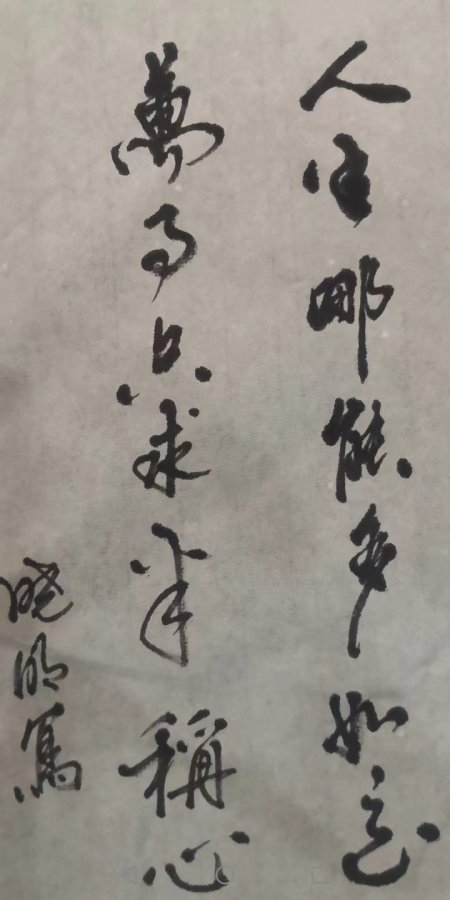 人生哪能多如意
萬事只求半稱心
晓明写